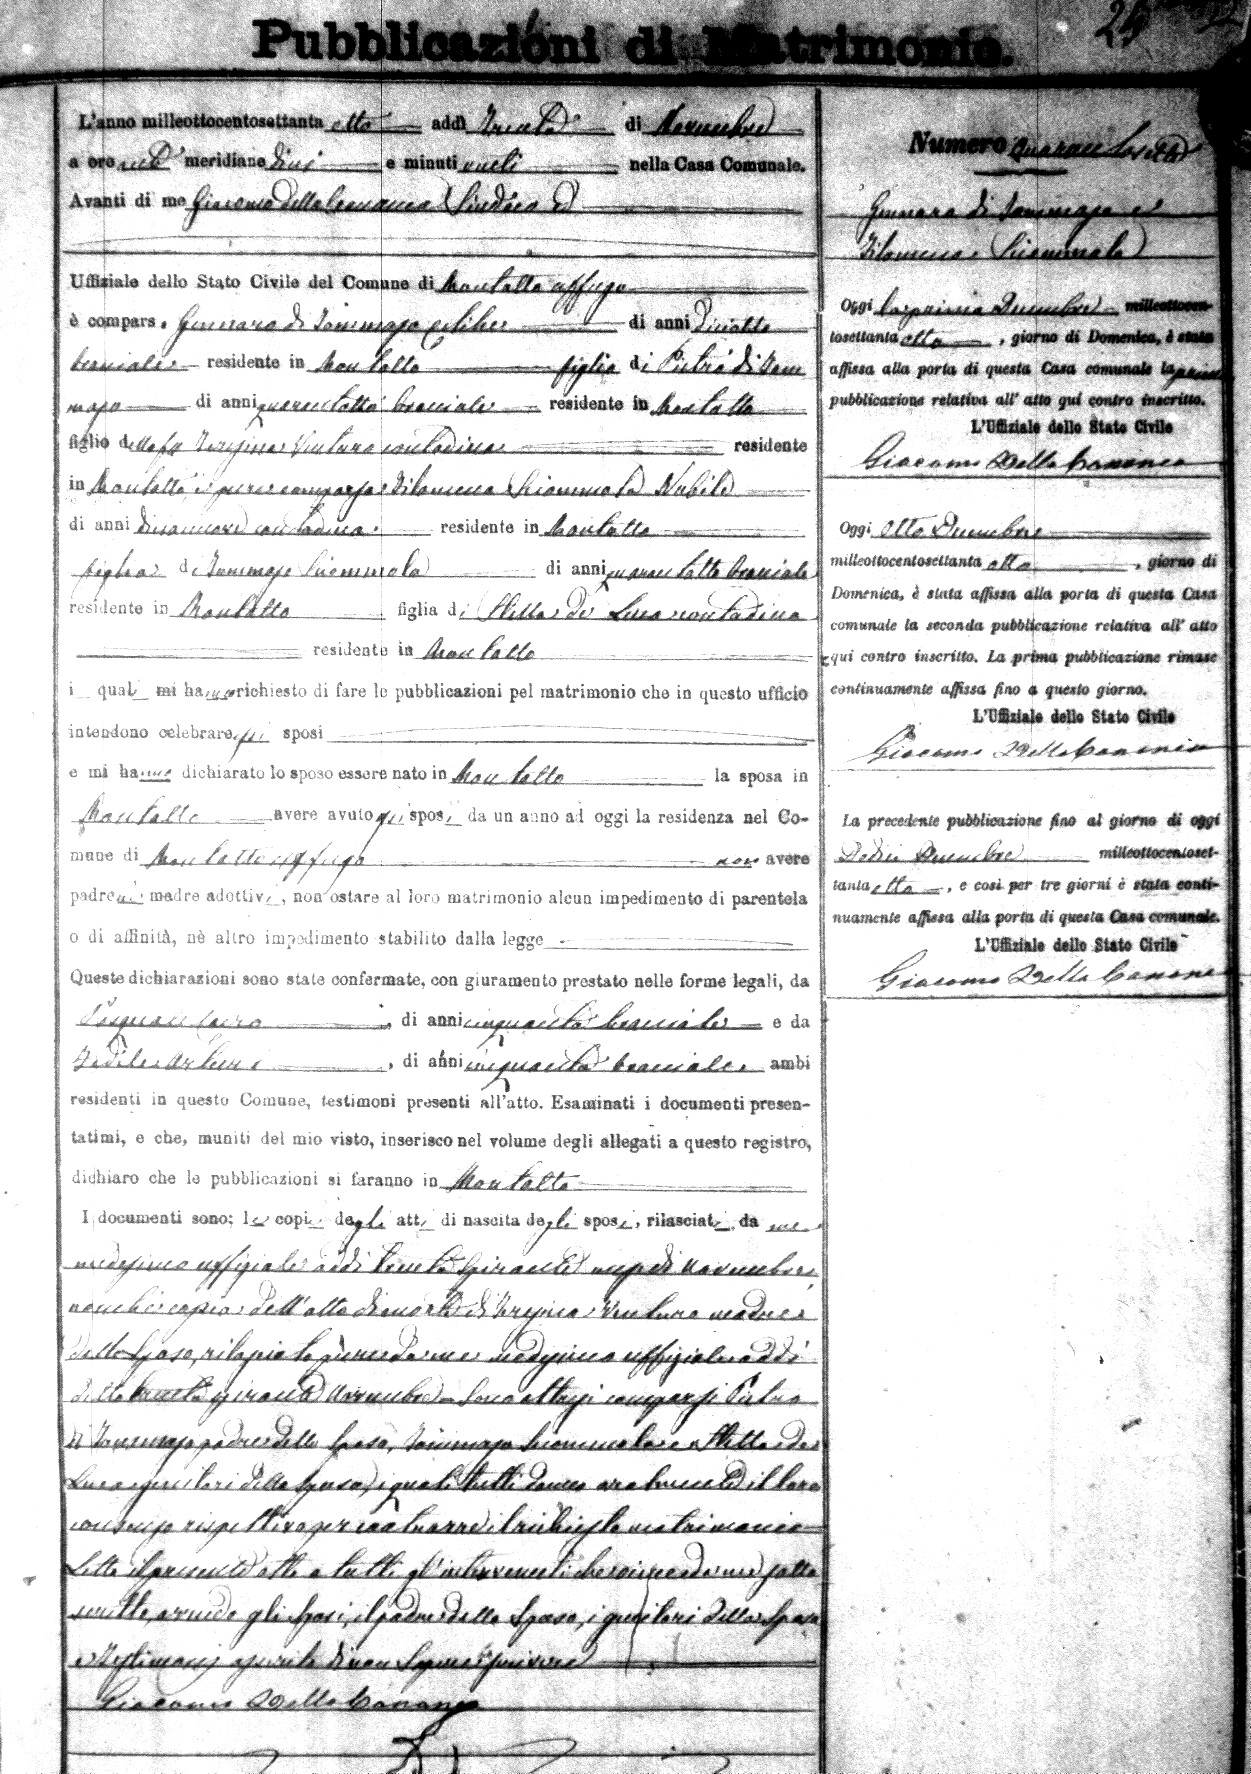 Pubblicazioni di Matrimonio.
25
L'anno millottocentosettanta otto addì trenta di Novembre
a ore anti meridiane dieci e minuti venti nella Casa Comunale.
Avanti di me Giacomo della Cananea Sindaco ed
Uffiziale dello Stato Civile del Comune di Montalto Uffugo
è compars. Gennaro di Tommaso celibe di anni diciotto
bracciale residente in Montalto figlio di Pietro di Tom
maso di anni quarantotto bracciale residente in Montalto
figlio della fu Teresina Ventura contadina residente
in Montalto, è pure comparsa Filomena Sciammola Nubile
di anni diecinnove contadina residente in Montalto
figlia di Tommaso Sciommola di anni quarantotto bracciale
residente in Montalto figlia di Stella de Luca contadina
residente in Montalto
i quali mi hanno richiesto di fare le pubblicazioni pel matrimonio che in questo ufficio
intendono celebrare essi sposi
e mi hanno dichiarato lo sposo essere nato in Montalto la sposa in
Montalto avere avuto gli sposi da un anno ad oggi la residenza nel Co-
mune di Montalto Uffugo non avere
padre nè madre adottivi, non ostare al loro matrimonio alcun impedimento di parentela
o di affinità, nè altro impedimento stabilito dalla legge
Queste dichiarazioni sono state confermate, con giuramento prestato nelle forme legali, da
Pasquale di anni cinquanta bracciale e da
Fedele Arturi, di anni cinquanta bracciale ambi
residenti in questo Comune, testimoni presenti all'atto. Esaminati i documenti presen-
tatimi, e che, muniti del mio visto, inserisco nel volume degli allegati a questo registro,
dichiaro che le pubblicazioni si faranno in Montalto
I documenti sono: le copie degli atti di nascita degli sposi, rilasciate da me
medesimo uffiziale addì trenta spirante mese di Novembre,
nonchè copia dell'atto di morte di Teresina Ventura madre
dello Sposo, rilasciata pure da me medesimo uffiziale addì
detto trenta spirante Novembre. Sono altresì comparsi Pietro
di Tommaso padre dello Sposo, Tommaso Sciommola e Stella de
Luca genitori della Sposa, i quali tutti danno oralmente il loro
consenso rispettivo per contrarre il richiesto matrimonio
Letto il presente atto a tutti gl'intervenuti che viene da me sotto
scritto, avendo gli Sposi, il padre dello Sposo, i genitori della Sposa
e testimoni asserito di non Sapere scrivere
Giacomo Della Cananea
Numero quarantasette
Gennaro di Tommaso e
Filomena Sciommola
Oggi la prima Decembre milleottocen-
tosettanta otto, giorno di Domenica, è stata
affissa alla porta di questa Casa comunale la prima
pubblicazione relativa all' atto qui contro inscritto.
L'Uffiziale dello Stato Civile
Giacomo Della Cananea
Oggi Otto Decembre
milleottocentosettanta otto, giorno di
Domenica, è stata affissa alla porta di questa Casa
comunale la seconda pubblicazione relativa all' atto
qui contro inscritto. La prima pubblicazione rimase
continuamente affissa fino a questo giorno.
L'Uffiziale dello Stato Civile
Giacomo Della Cananea
La precedente pubblicazione fino al giorno di oggi
Dodici Decembre milleottocentoset-
tanta otto, e così per tre giorni è stata conti-
nuamente affissa alla porta di questa Casa comunale.
L'Uffiziale dello Stato Civile
Giacomo Della Cananea